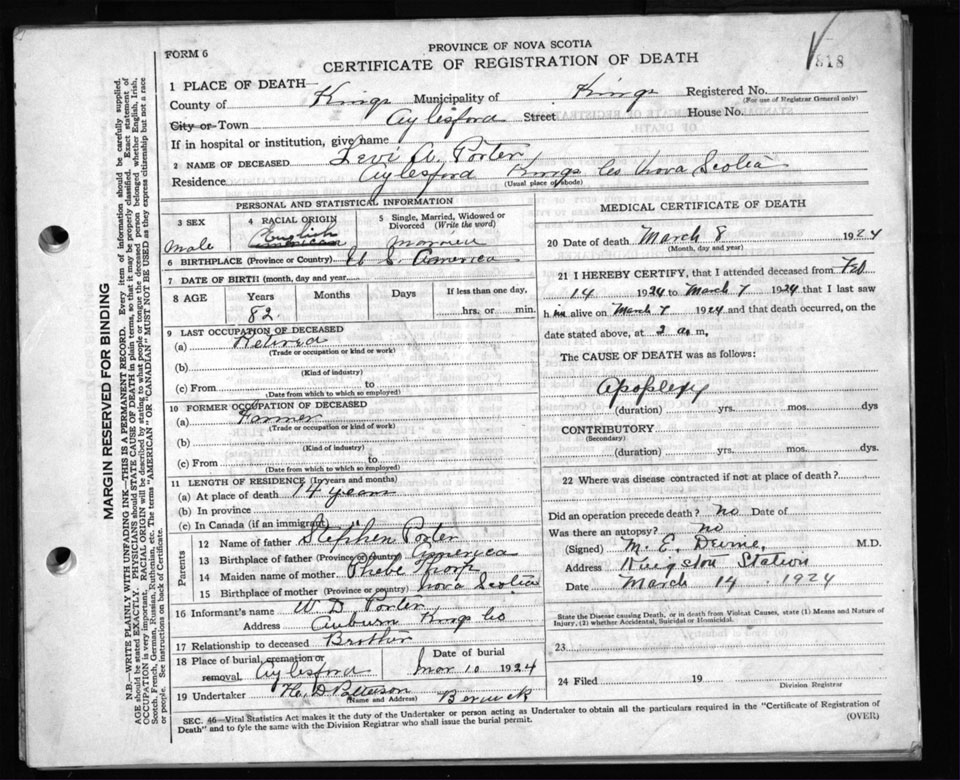 FORM 6
PROVINCE OF NOVA SCOTIA
CERTIFICATE OF REGISTRATION OF DEATH
818
1 PLACE OF DEATH
County of Kings Municipality of Kings Registered No.
(For use of Registrar General only)
City or Town Aylesford Street House No.
If in hospital or institution, give name
2 NAME OF DECEASED Levi A. Porter
Residence Aylesford Kings Co Nova Scotia
(Usual place of abode)
PERSONAL AND STATISTICAL INFORMATION
3 SEX 4 RACIAL ORIGIN 5 Single, Married, Widowed or Divorced (Write the word)
male English American married
6 BIRTHPLACE (Province or Country) U S. America
7 DATE OF BIRTH (month, day and year)
8 AGE Years Months Days If less than one day,
82 hrs. or min.
9 LAST OCCUPATION OF DECEASED
(a) Retired
(Trade or occupation or kind or work)
(b)
(Kind of industry)
(c) From to
(Date from which to which so employed)
10 FORMER OCCUPATION OF DECEASED
(a) Farmer
(Trade or occupation or kind of work)
(b)
(Kind of industry)
(c) From to
(Date from which to which so employed)
11 LENGTH OF RESIDENCE (In years and months)
(a) At place of death 14 years
(b) In province
(c) In Canada (if an immigrant)
Parents
12 Name of father Stephen Porter
13 Birthplace of father (Province or Country) America
14 Maiden name of mother Phebe Thorp
15 Birthplace of mother (Province or country) Nova Scotia
16 Informant's name W D Porter
Address Auburn Kings Co
17 Relationship to deceased Brother
18 Place of burial, cremation or removal Aylesford Date of burial Mar 10 1924
19 Undertaker D Patterson Berwick
(Name and Address)
MEDICAL CERTIFICATE OF DEATH
20 Date of death March 8 1924
(Month, day and year)
21 I HEREBY CERTIFY, that I attended deceased from Feb
14 1924 to March 7 1924 that I last saw
him alive on March 7 1924 and that death occurred, on the
date stated above, at 2 a. m.
The CAUSE OF DEATH was as follows:
Apoplexy
(duration) yrs. mos. dys
CONTRIBUTORY
(Secondary)
(duration) yrs. mos. dys.
22 Where was disease contracted if not at place of death?
Did an operation precede death? no Date of
Was there an autopsy? no
(Signed) M. E. M.D.
Address Kingston Station
Date March 14 1924
State the Disease causing Death, or in death from Violent Causes, state (1) Means and Nature of
Injury, (2) whether Accidental, Suicidal or Homicidal.
23
24 Filed 19
Division Registrar
SEC. 46—Vital Statistics Act makes it the duty of the Undertaker or person acting as Undertaker to obtain all the particulars required in the "Certificate of Registration of
Death" and to fyle the same with the Division Registrar who shall issue the burial permit.
(OVER)
MARGIN RESERVED FOR BINDING
N.B.—WRITE PLAINLY WITH UNFADING INK—THIS IS A PERMANENT RECORD. Every item of information should be carefully supplied.
AGE should be stated EXACTLY. PHYSICIANS should STATE CAUSE OF DEATH in plain terms, so that it may be properly classified. Exact statement of
OCCUPATION is very important. RACIAL ORIGIN will be described by stating to what people or tongue the deceased person belonged whether English, Irish,
Scotch, French, German, Russian, Ruthenian, etc. The terms "AMERICAN" OR "CANADIAN" MUST NOT BE USED as they express citizenship but not a race
or people. See instructions on back of Certificate.